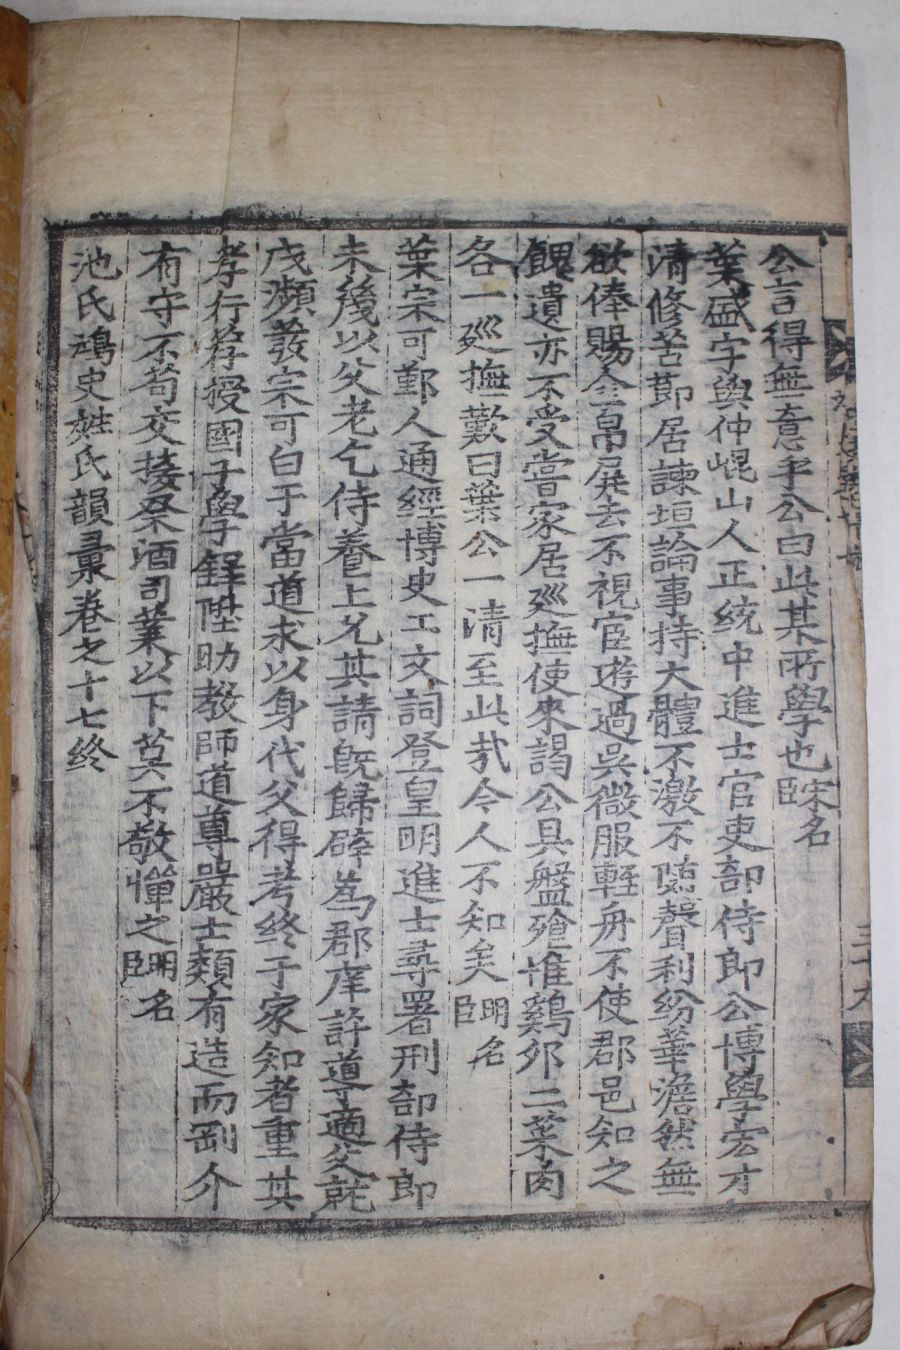 公言得無意乎公曰此其所學也宋名臣
葉盛字與仲崐山人正統中進士官吏部侍郎公博學宏才
清修苦節居諫垣論事持大體不激不隨聲利紛華澹然無
欲俸賜金帛屏去不視宦遊過吳微服輕舟不使郡邑知之
餽遺亦不受嘗家居廵撫使來謁公具盤飱惟鷄夘二菜肉
各一廵撫歎曰葉公一清至此㢤令人不知矣明名臣
葉宗可鄞人通經博史工文詞登皇明進士尋署刑部侍郎
未幾以父老乞侍養上允其請旣歸辟爲郡庠許導適父就
戍瀕發宗可白于當道求以身代父得考終于家知者重其
孝行荐授國子學錄陞助敎師道尊嚴士類有造而剛介
有守不苟交接祭酒司業以下莫不敬憚之明名臣
池氏鴻史姓氏韻彙卷之十七終
三十九